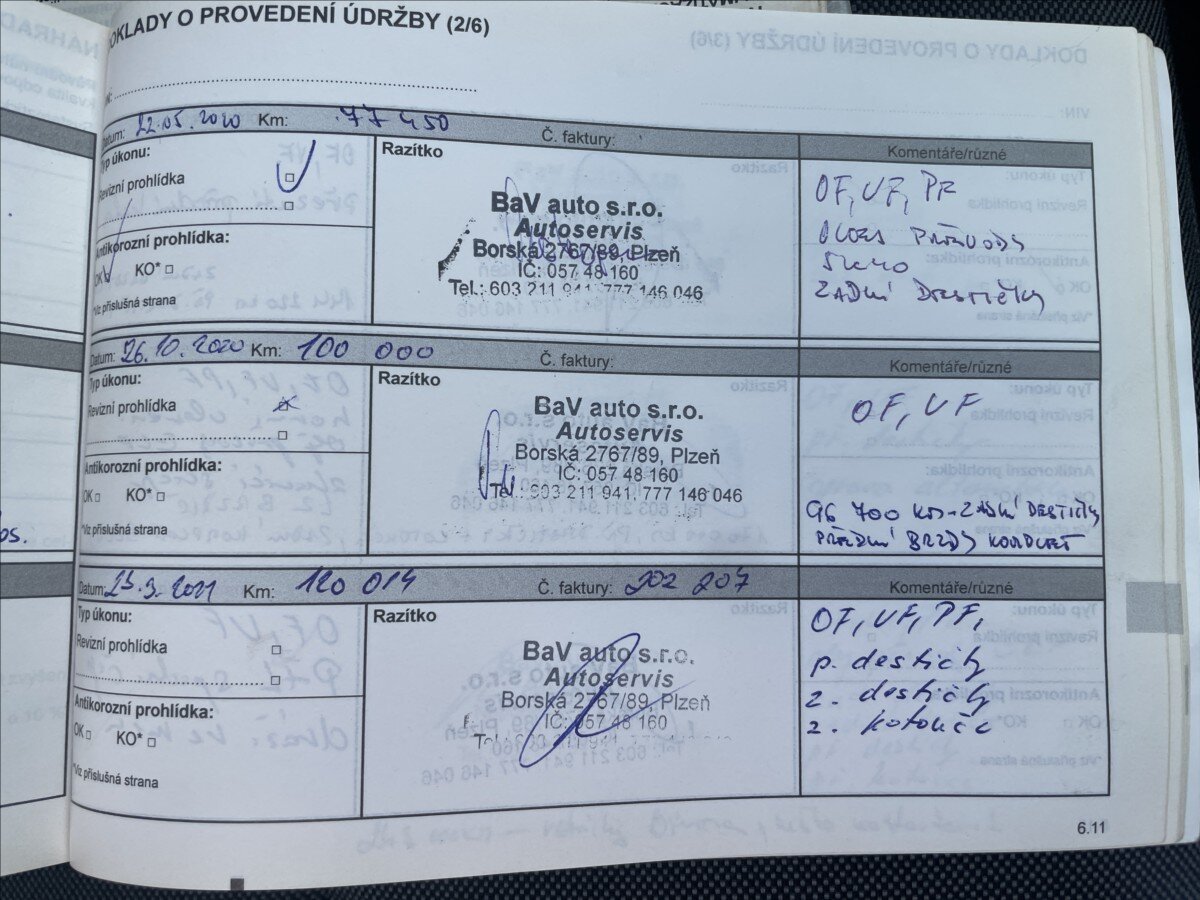 DOKLADY O PROVEDENÍ ÚDRŽBY (2/6)
Datum: 22.05.2020 Km: 77 450 Č. faktury:
Typ úkonu:
Revizní prohlídka
Antikorozní prohlídka:
OK KO*
*Viz příslušná strana
Razítko
BaV auto s.r.o.
Autoservis
Borská 2767/89, Plzeň
IČ: 057 48 160
Tel.: 603 211 941, 777 146 046
Komentáře/různé
OF, VF, PF
PŘEVODY
ZADNÍ DESTIČKY
Datum: 26.10.2020 Km: 100 000 Č. faktury:
Typ úkonu:
Revizní prohlídka
Antikorozní prohlídka:
OK KO*
*Viz příslušná strana
Razítko
BaV auto s.r.o.
Autoservis
Borská 2767/89, Plzeň
IČ: 057 48 160
Tel.: 603 211 941, 777 146 046
Komentáře/různé
OF, VF
96 700 KM-ZADNÍ DESTIČKY
PŘEDNÍ BRZDY KOMPLET
Datum: 23.3.2021 Km: 120 014 Č. faktury: 202 207
Typ úkonu:
Revizní prohlídka
Antikorozní prohlídka:
OK KO*
*Viz příslušná strana
Razítko
BaV auto s.r.o.
Autoservis
Borská 2767/89, Plzeň
IČ: 057 48 160
Komentáře/různé
OF, VF, PF,
p. destičky
z. destičky
z. kotouče
6.11